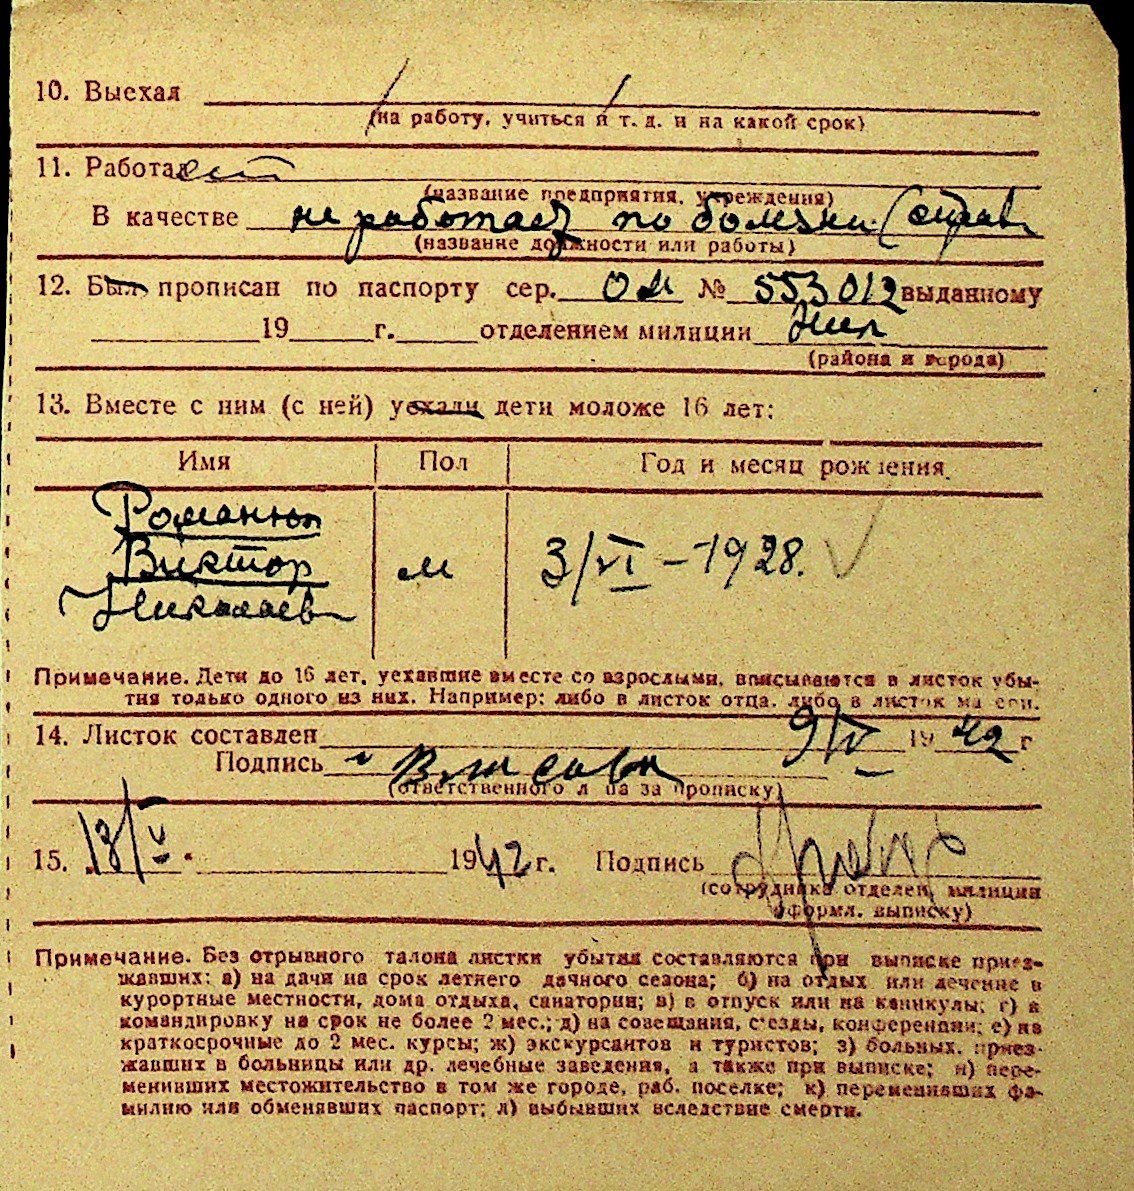 10. Выехал
(на работу, учиться и т. д. и на какой срок)
11. Работает
(название предприятия, учреждения)
В качестве не работает по болезни (справ
(название должности или работы)
12. Был прописан по паспорту сер. ОМ № 553012 выданному
19 г. отделением милиции
(района и города)
13. Вместе с ним (с ней) уехали дети моложе 16 лет:
Имя Пол Год и месяц рождения
Романюк
Виктор м 3/VI – 1928.
Николаев
Примечание. Дети до 16 лет, уехавшие вместе со взрослыми, вписываются в листок убы-
тия только одного из них. Например: либо в листок отца, либо в листок матери.
14. Листок составлен 9/V 1942 г
Подпись
(ответственного лица за прописку)
15. 13/V 1942 г. Подпись
(сотрудника отделен. милиции
оформл. выписку)
Примечание. Без отрывного талона листки убытия составляются при выписке приез-
жавших: а) на дачи на срок летнего дачного сезона; б) на отдых или лечение в
курортные местности, дома отдыха, санатории; в) в отпуск или на каникулы; г) в
командировку на срок не более 2 мес.; д) на совещания, съезды, конференции; е) на
краткосрочные до 2 мес. курсы; ж) экскурсантов и туристов; з) больных, приез-
жавших в больницы или др. лечебные заведения, а также при выписке; и) пере-
менивших местожительство в том же городе, раб. поселке; к) переменивших фа-
милию или обменявших паспорт; л) выбывших вследствие смерти.